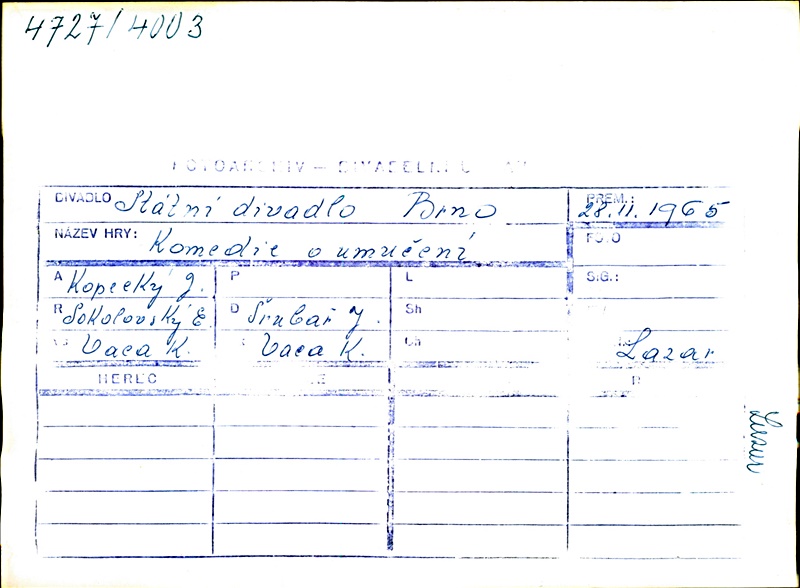 4727/4003
FOTOARCHIV – DIVADELNÍ
DIVADLO Státní divadlo Brno PREM.: 28.11.1965
NÁZEV HRY: Komedie o umučení FOTO
A Kopecký J. P L SIG.:
R Sokolovský E. D Šrubař J. Sh
Vaca K. Vaca K. Ch Lazar
HEREC
Lazar